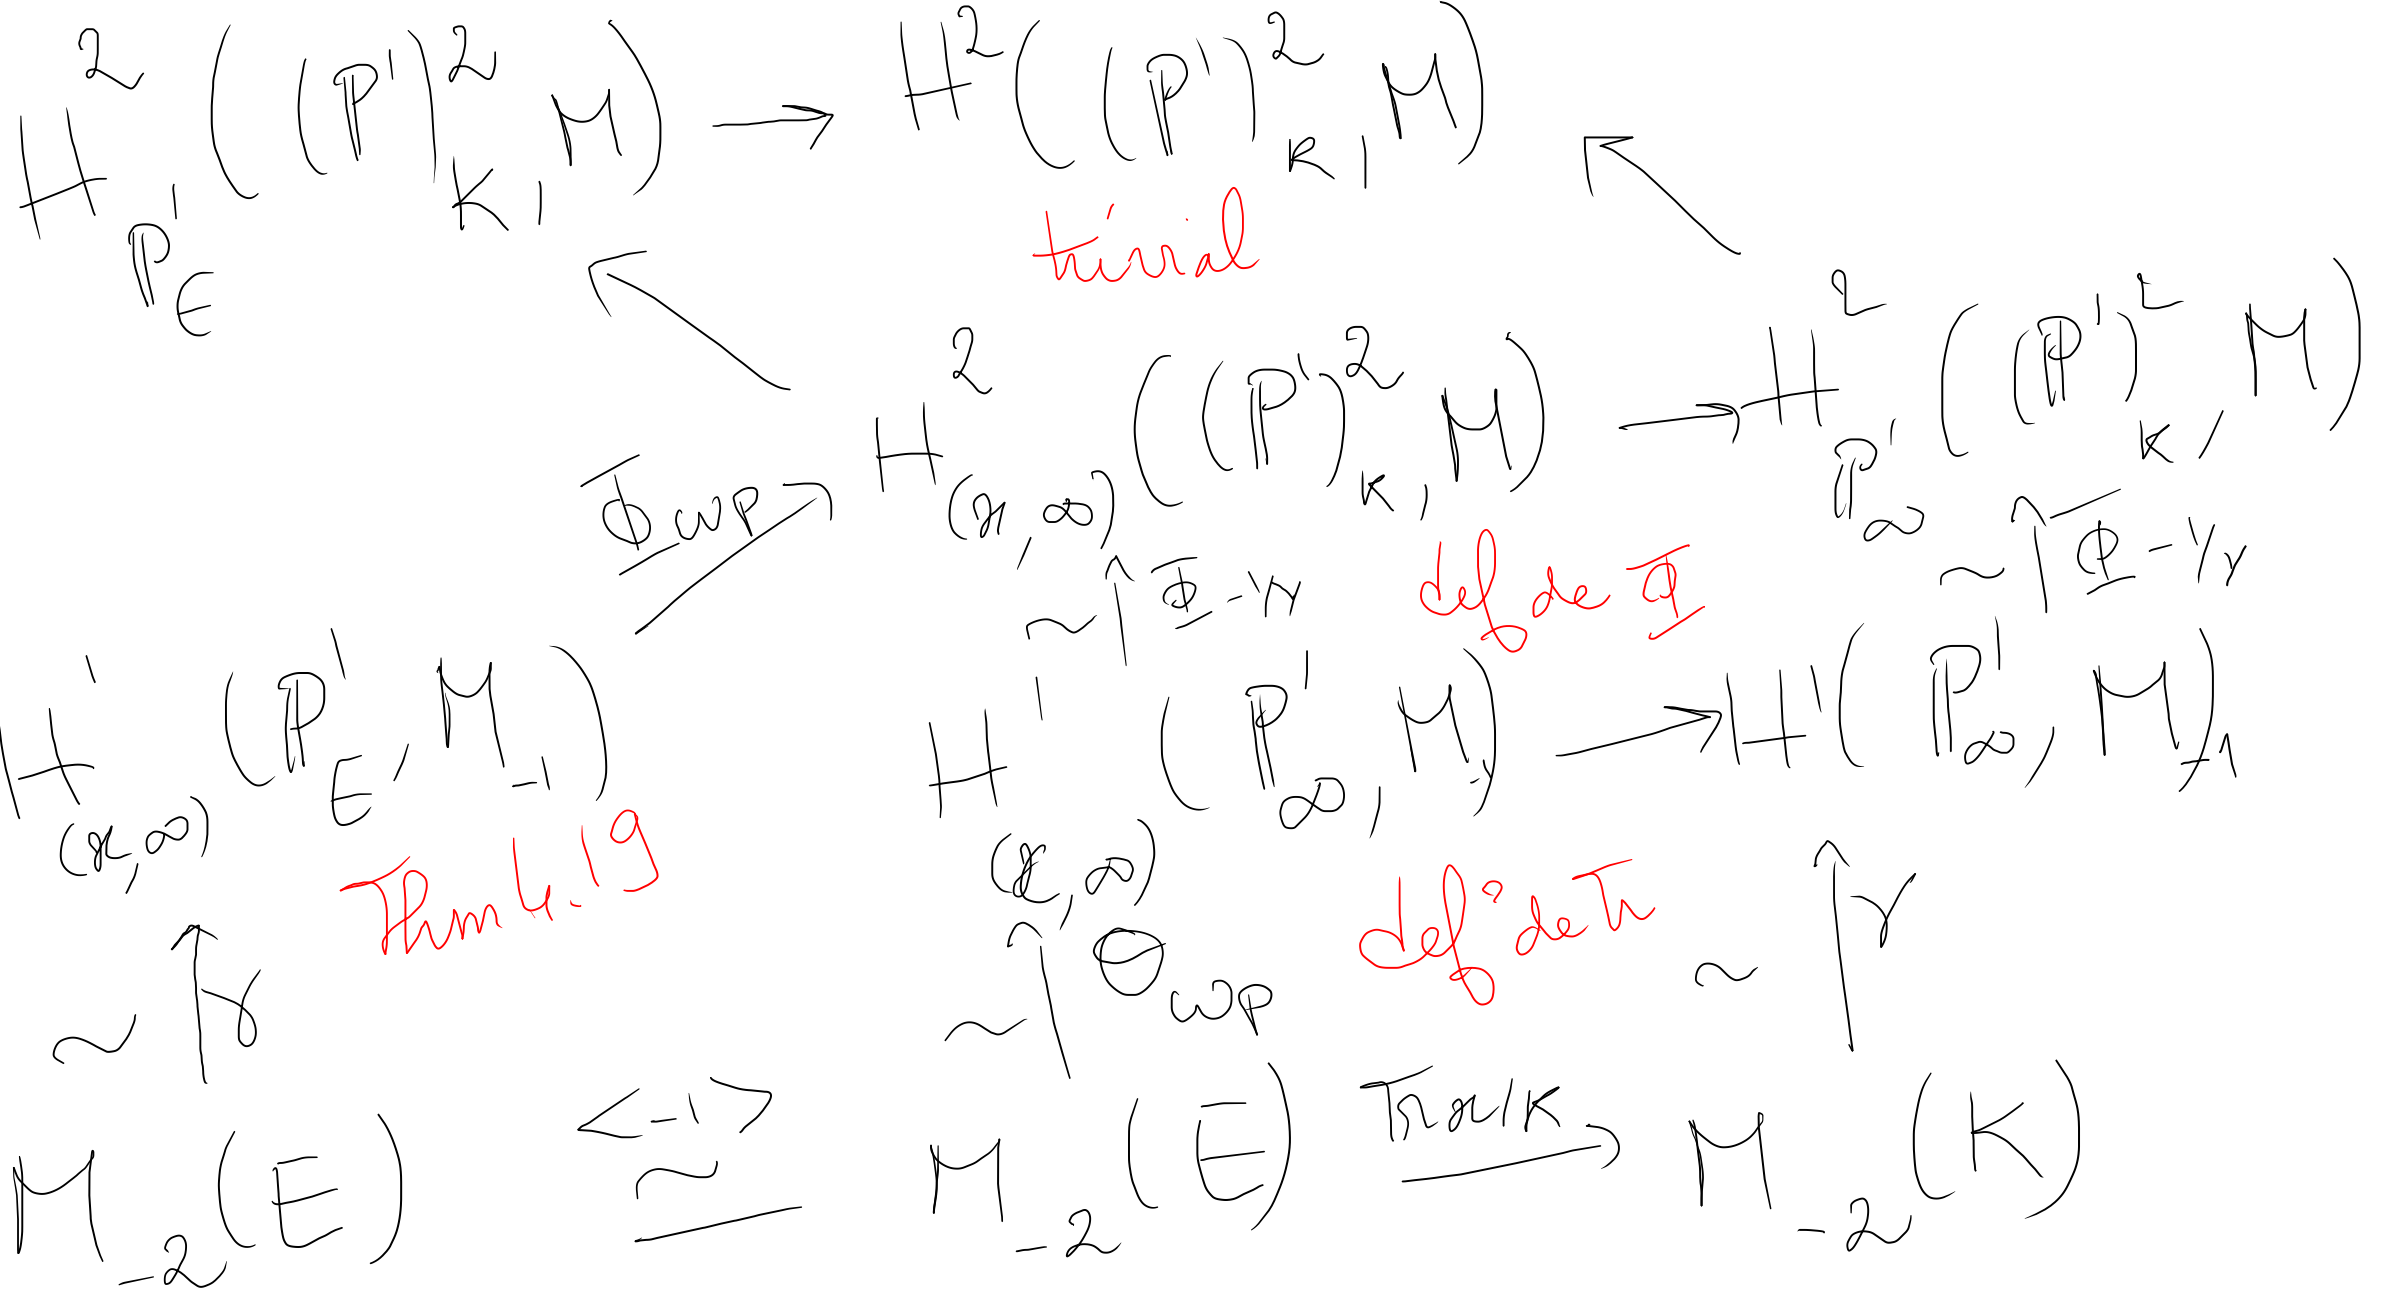 H²_{P¹_E}((P¹)²_K, M) → H²((P¹)²_K, M)
trivial
H²_{(x,∞)}((P¹)²_K, M) → H²_{P¹_∞}((P¹)²_K, M)
Φ_{wp}
~ ↑ Φ_{-1/r}
def de Φ
~ ↑ Φ_{-1/r}
H¹_{(x,∞)}(P¹_E, M_{-1})
H¹_{(x,∞)}(P¹_∞, M_{-1}) → H¹(P¹_∞, M_{-1})
Thm 4.19
def° de Tr
~ ↑ r
~ ↑ Θ_{wp}
~ ↑ r
M_{-2}(E) <-1> ≃ M_{-2}(E) Tr x/K → M_{-2}(K)